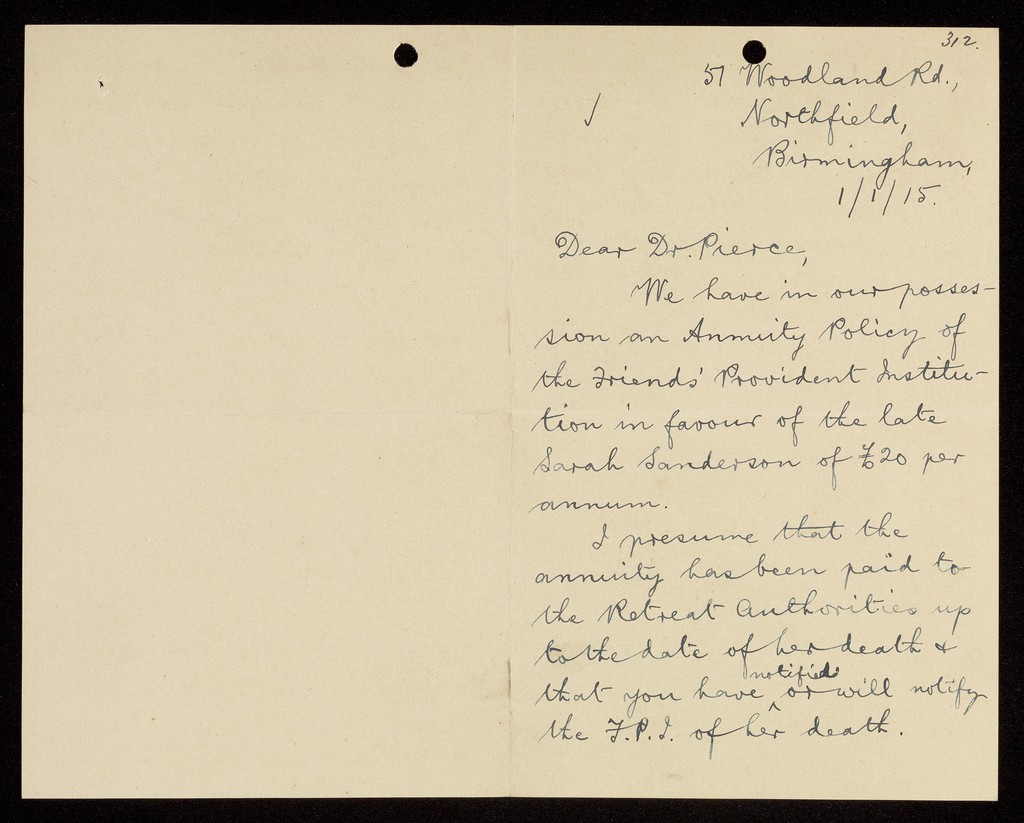 312.
51 Woodland Rd.,
Northfield,
Birmingham,
1/1/15.
Dear Dr. Pierce,
We have in our posses-
sion an Annuity Policy of
the Friends' Provident Institu-
tion in favour of the late
Sarah Sanderson of £20 per
annum.
I presume that the
annuity has been paid to
the Retreat Authorities up
to the date of her death &
notified
that you have ^ or will notify
the F.P.I. of her death.